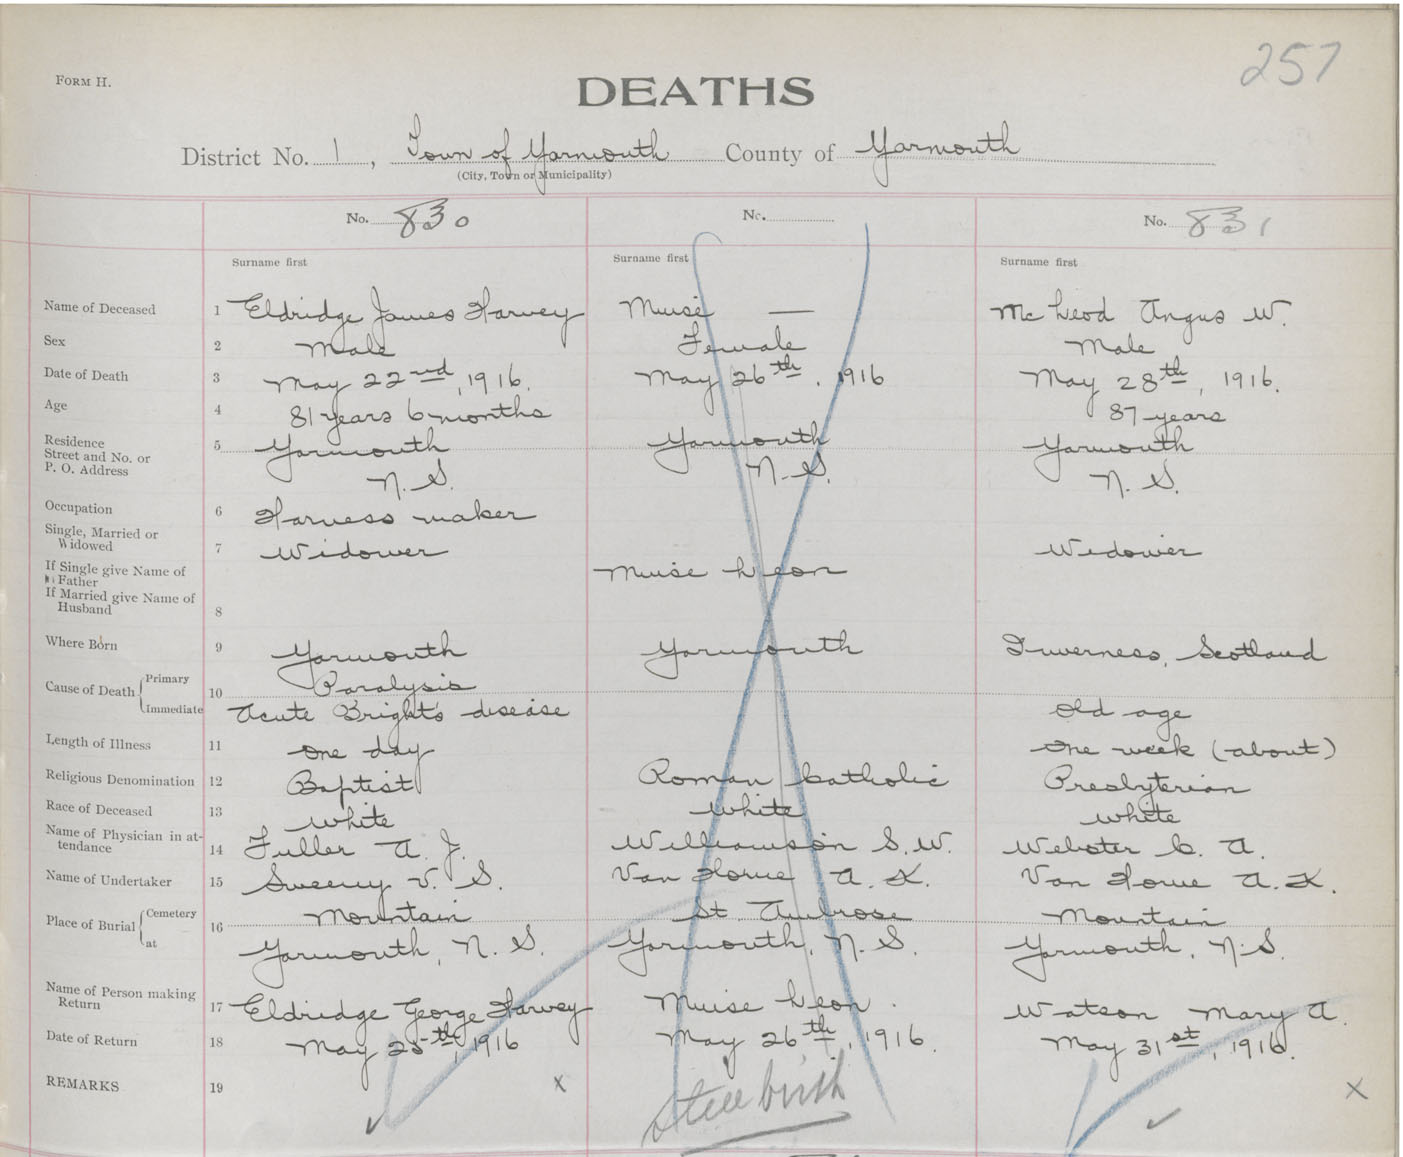 257
FORM H.
DEATHS
District No. 1, Town of Yarmouth County of Yarmouth
(City, Town or Municipality)
No. 830 No. No. 831
Surname first Surname first Surname first
Name of Deceased 1 Eldridge James Harvey Muise — McLeod Angus W.
Sex 2 Male Female Male
Date of Death 3 May 22nd, 1916. May 26th, 1916 May 28th, 1916.
Age 4 81 years 6 months 87 years
Residence 5 Yarmouth Yarmouth Yarmouth
Street and No. or
P. O. Address N. S. N. S. N. S.
Occupation 6 Harness maker
Single, Married or
Widowed 7 Widower Widower
If Single give Name of Muise Leon
Father
If Married give Name of
Husband 8
Where Born 9 Yarmouth Yarmouth Inverness, Scotland
Cause of Death Primary 10 Paralysis
Immediate Acute Bright's disease Old age
Length of Illness 11 One day One week (about)
Religious Denomination 12 Baptist Roman Catholic Presbyterian
Race of Deceased 13 White White White
Name of Physician in at-
tendance 14 Fuller A. J. Williamson S. W. Webster C. A.
Name of Undertaker 15 Sweeny V. S. Van Horne A. K. Van Horne A. K.
Place of Burial Cemetery 16 Mountain St Ambrose Mountain
at Yarmouth, N. S. Yarmouth, N. S. Yarmouth, N. S.
Name of Person making
Return 17 Eldridge George Harvey Muise Leon. Watson Mary A.
Date of Return 18 May 25th, 1916 May 26th, 1916. May 31st, 1916.
REMARKS 19 x Still birth x